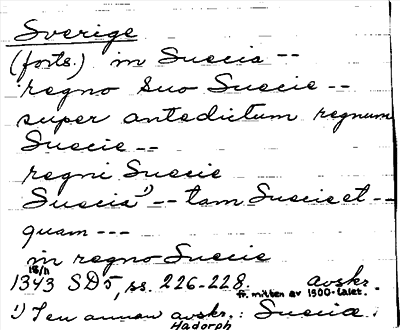 Sverige
(forts.) in Suecia --
regno suo Suecie --
super antedictum regnum
Suecie --
regni Suecie
Suecia¹) -- tam Suecie et --
quam ---
in regno Suecie
18/11
1343 SD 5, ss. 226-228. avskr.
fr. mitten av 1500-talet.
¹) I en annan avskr.: Suecia.
Hadorph